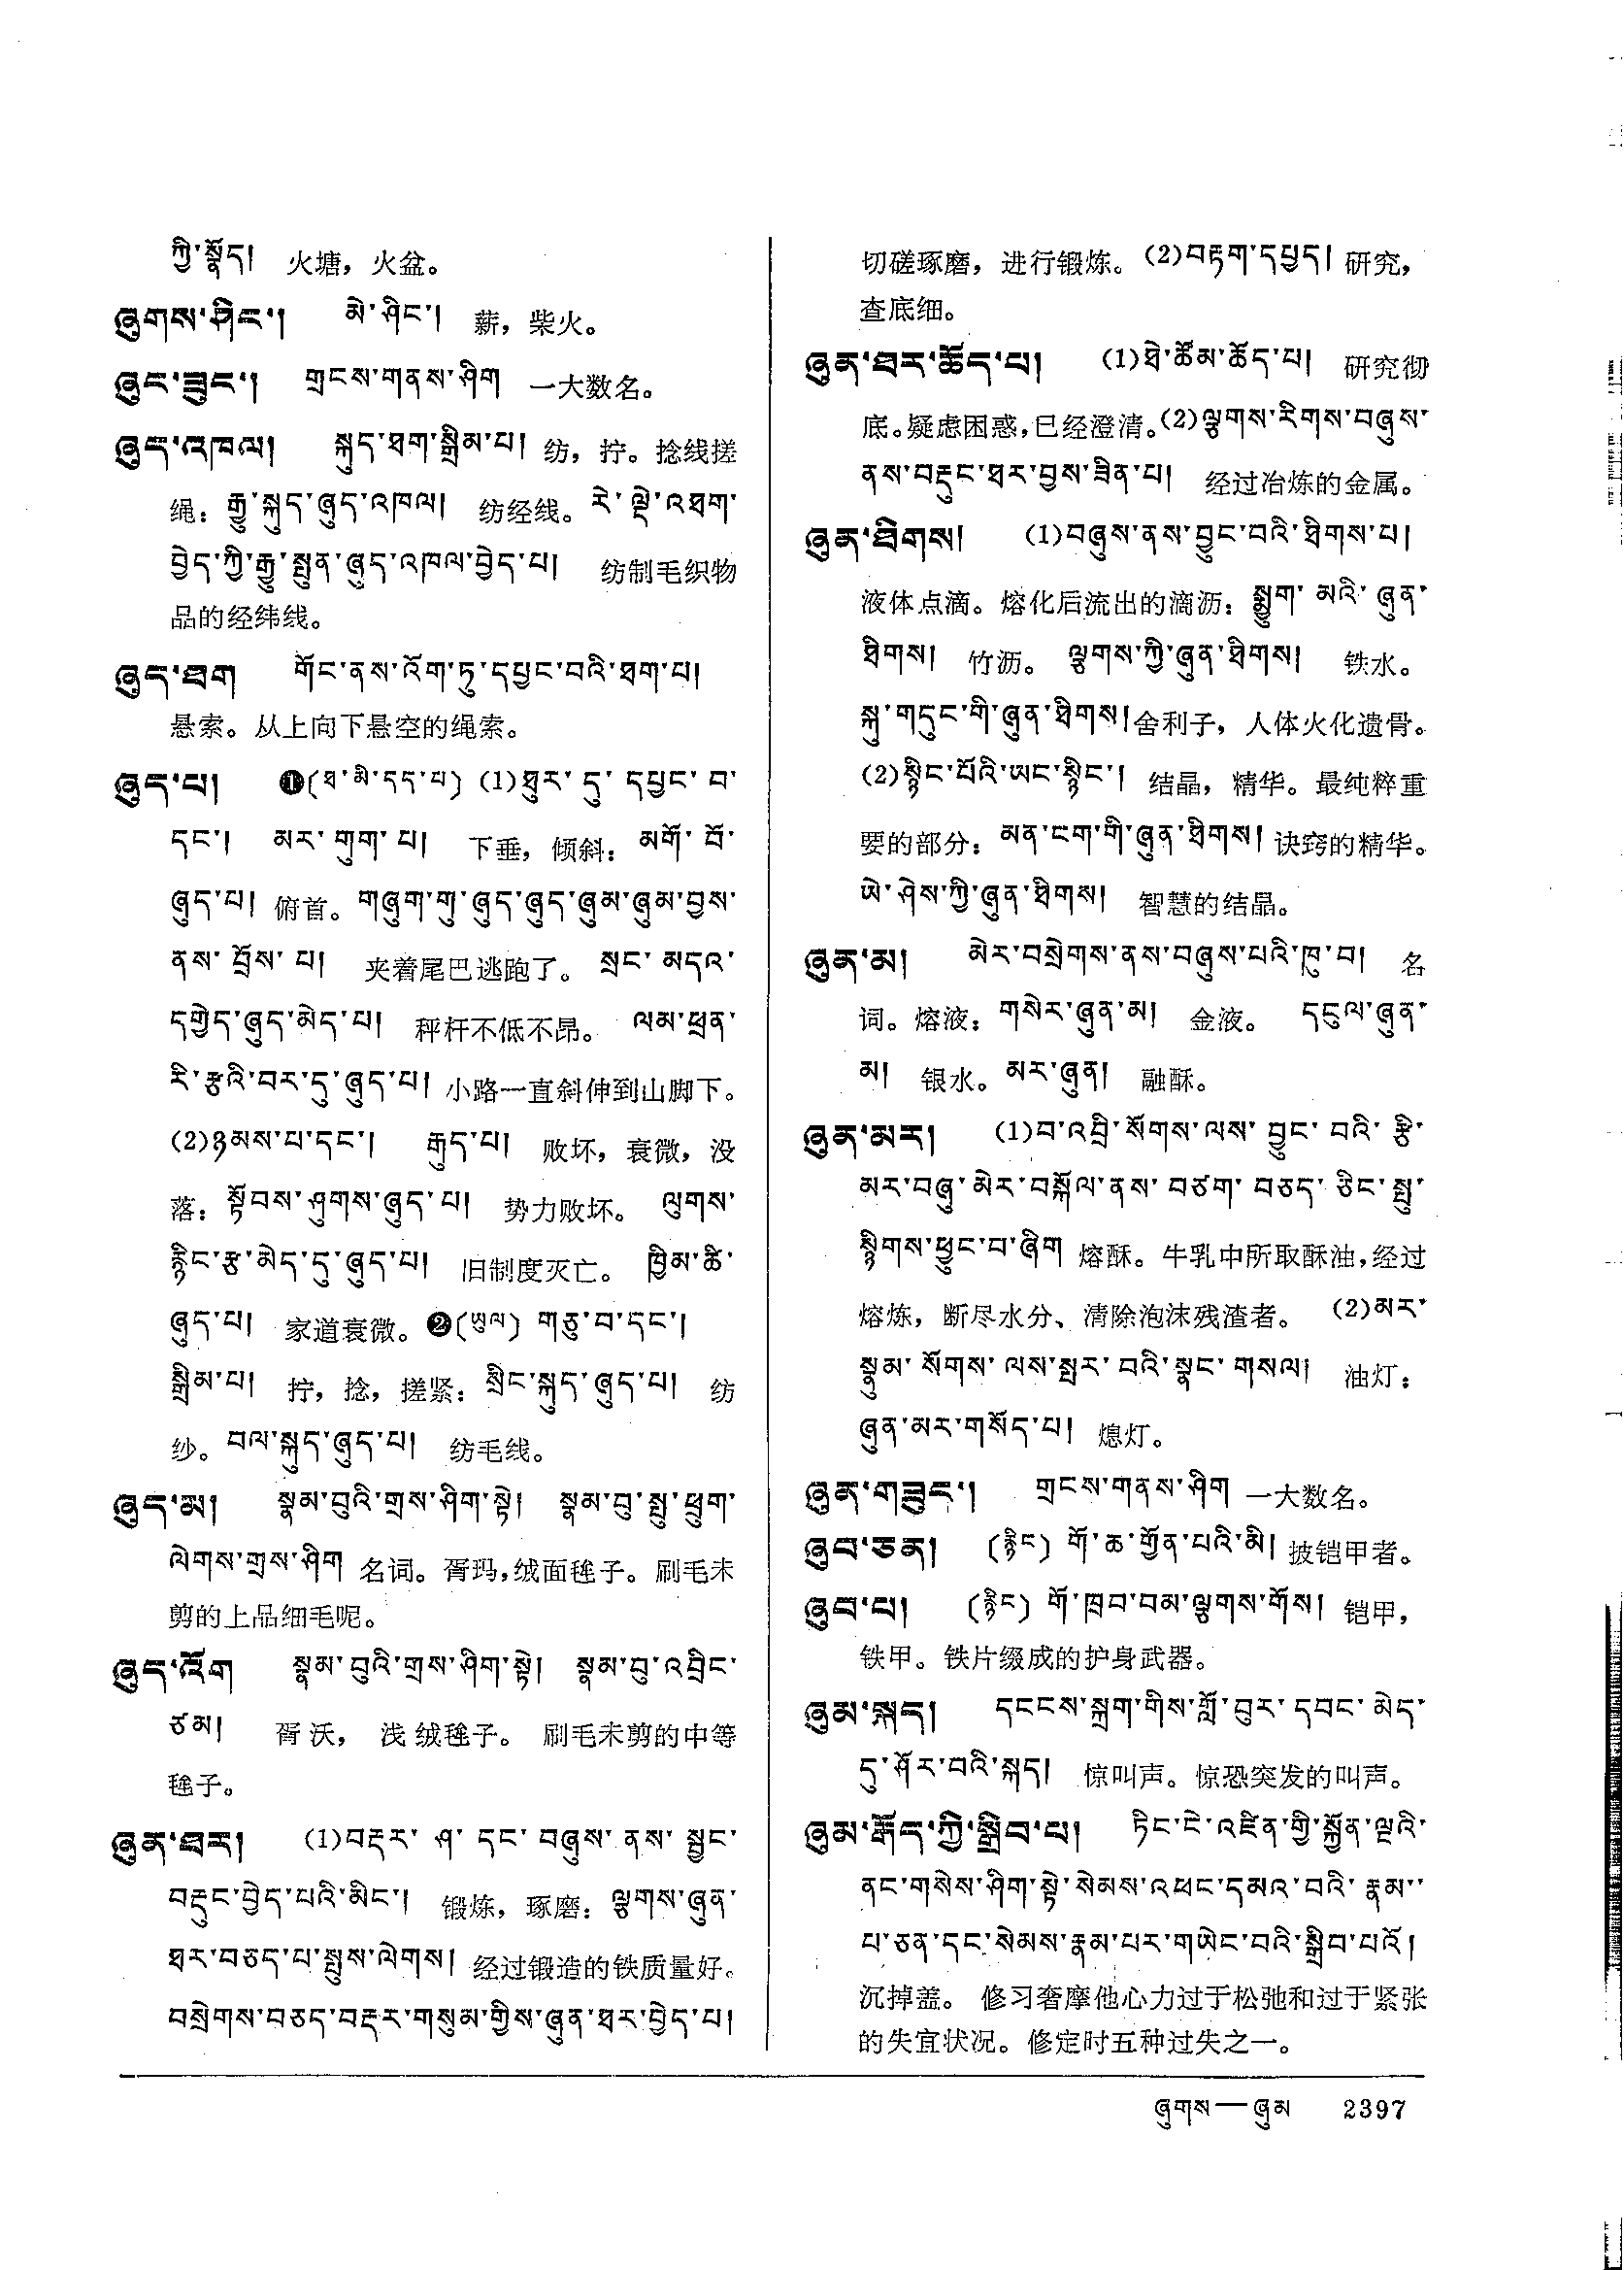 ཀྱི་སྣོད། 火塘，火盆。
ཞུགས་ཤིང་། མེ་ཤིང་། 薪，柴火。
ཞུང་ཟུང་། གྲངས་གནས་ཤིག 一大数名。
ཞུད་འཁལ། སྐུད་ཐག་སྒྲིམ་པ། 纺，拧。捻线搓
绳：རྒྱུ་སྐུད་ཞུད་འཁལ། 纺经线。རེ་ལྡེ་འཐག་
བྱེད་ཀྱི་རྒྱུ་སྤུན་ཞུད་འཁལ་བྱེད་པ། 纺制毛织物
品的经纬线。
ཞུད་ཐག གོང་ནས་འོག་ཏུ་དཔྱང་བའི་ཐག་པ།
悬索。从上向下悬空的绳索。
ཞུད་པ། ❶(ཐ་མི་དད་པ) (1)ཐུར་དུ་དཔྱང་བ་
དང་། མར་གུག་པ། 下垂，倾斜：མགོ་བོ་
ཞུད་པ། 俯首。གཞུག་གུ་ཞུད་ཞུད་ཞུམ་ཞུམ་བྱས་
ནས་བྲོས་པ། 夹着尾巴逃跑了。སྲང་མདའ་
དགྱེད་ཞུད་མེད་པ། 秤杆不低不昂。ལམ་ཕྲན་
རི་རྩའི་བར་དུ་ཞུད་པ། 小路一直斜伸到山脚下。
(2)ཉམས་པ་དང་། རྒུད་པ། 败坏，衰微，没
落：སྟོབས་ཤུགས་ཞུད་པ། 势力败坏。ལུགས་
རྙིང་རྩ་མེད་དུ་ཞུད་པ། 旧制度灭亡。ཁྱིམ་ཚི་
ཞུད་པ། 家道衰微。❷(ཡུལ) གཅུ་བ་དང་།
སྒྲིམ་པ། 拧，捻，搓紧：སྲིང་སྐུད་ཞུད་པ། 纺
纱。བལ་སྐུད་ཞུད་པ། 纺毛线。
ཞུད་མ། སྣམ་བུའི་གྲས་ཤིག་སྟེ། སྣམ་བུ་སྤུ་ཕྲུག་
ལེགས་གྲས་ཤིག 名词。胥玛，绒面毪子。刷毛未
剪的上品细毛呢。
ཞུད་འོག སྣམ་བུའི་གྲས་ཤིག་སྟེ། སྣམ་བུ་འབྲིང་
ཙམ། 胥沃，浅绒毪子。刷毛未剪的中等
毪子。
ཞུན་ཐར། (1)བརྡར་ཤ་དང་བཞུས་ནས་སྦྱང་
བརྡུང་བྱེད་པའི་མིང་། 锻炼，琢磨：ལྕགས་ཞུན་
ཐར་བཅད་པ་སྤུས་ལེགས། 经过锻造的铁质量好。
བསྲེགས་བཅད་བརྡར་གསུམ་གྱིས་ཞུན་ཐར་བྱེད་པ།
切磋琢磨，进行锻炼。(2)བརྟག་དཔྱད། 研究，
查底细。
ཞུན་ཐར་ཆོད་པ། (1)ཐེ་ཚོམ་ཆོད་པ། 研究彻
底。疑虑困惑，已经澄清。(2)ལྕགས་རིགས་བཞུས་
ནས་བརྡུང་ཐར་བྱས་ཟིན་པ། 经过冶炼的金属。
ཞུན་ཐིགས། (1)བཞུས་ནས་བྱུང་བའི་ཐིགས་པ།
液体点滴。熔化后流出的滴沥：སྨྱུག་མའི་ཞུན་
ཐིགས། 竹沥。ལྕགས་ཀྱི་ཞུན་ཐིགས། 铁水。
སྐུ་གདུང་གི་ཞུན་ཐིགས། 舍利子，人体火化遗骨。
(2)སྙིང་པོའི་ཡང་སྙིང་། 结晶，精华。最纯粹重
要的部分：མན་ངག་གི་ཞུན་ཐིགས། 诀窍的精华。
ཡེ་ཤེས་ཀྱི་ཞུན་ཐིགས། 智慧的结晶。
ཞུན་མ། མེར་བསྲེགས་ནས་བཞུས་པའི་ཁུ་བ། 名
词。熔液：གསེར་ཞུན་མ། 金液。དངུལ་ཞུན་
མ། 银水。མར་ཞུན། 融酥。
ཞུན་མར། (1)བ་འབྲི་སོགས་ལས་བྱུང་བའི་རྩི་
མར་བཞུ་མེར་བསྐོལ་ནས་བཙག་བཅད་ཅིང་སྤྲུ་
སྙིགས་ཕྱུང་བ་ཞིག 熔酥。牛乳中所取酥油，经过
熔炼，断尽水分、清除泡沫残渣者。(2)མར་
སྣུམ་སོགས་ལས་སྦར་བའི་སྣང་གསལ། 油灯：
ཞུན་མར་གསོད་པ། 熄灯。
ཞུན་གཟུང་། གྲངས་གནས་ཤིག 一大数名。
ཞུབ་ཅན། (རྙིང) གོ་ཆ་གྱོན་པའི་མི། 披铠甲者。
ཞུབ་པ། (རྙིང) གོ་ཁྲབ་བམ་ལྕགས་གོས། 铠甲，
铁甲。铁片缀成的护身武器。
ཞུམ་སྐད། དངངས་སྐྲག་གིས་གློ་བུར་དབང་མེད་
དུ་ཤོར་བའི་སྐད། 惊叫声。惊恐突发的叫声。
ཞུམ་རྒོད་ཀྱི་སྒྲིབ་པ། ཏིང་ངེ་འཛིན་གྱི་སྐྱོན་ལྔའི་
ནང་གསེས་ཤིག་སྟེ་སེམས་འཕང་དམའ་བའི་རྣམ་་
པ་ཅན་དང་སེམས་རྣམ་པར་གཡེང་བའི་སྒྲིབ་པའོ།
沉掉盖。修习奢摩他心力过于松弛和过于紧张
的失宜状况。修定时五种过失之一。
ཞུགས—ཞུམ 2397